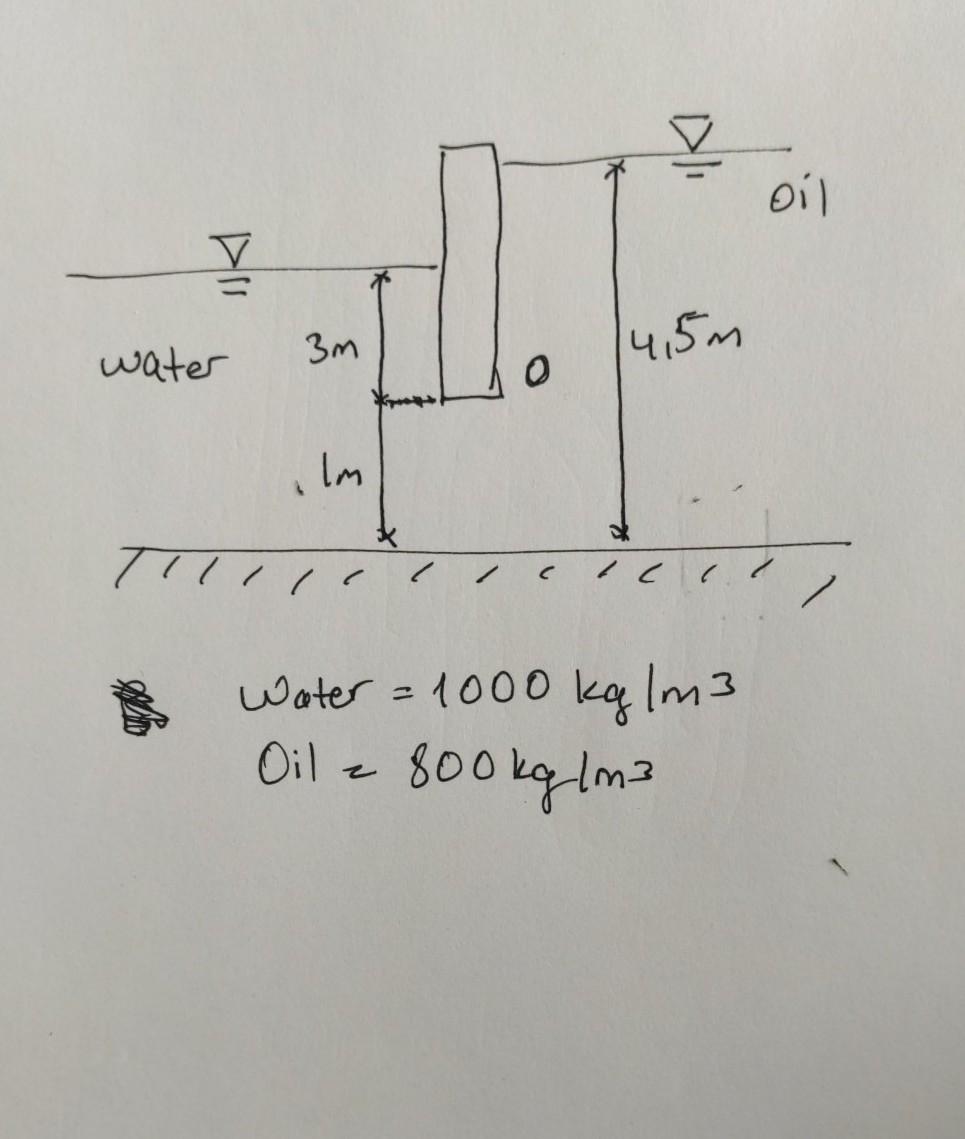 Oil
water
3m
4,5m
O
1m
Water = 1000 kg/m3
Oil = 800 kg/m3